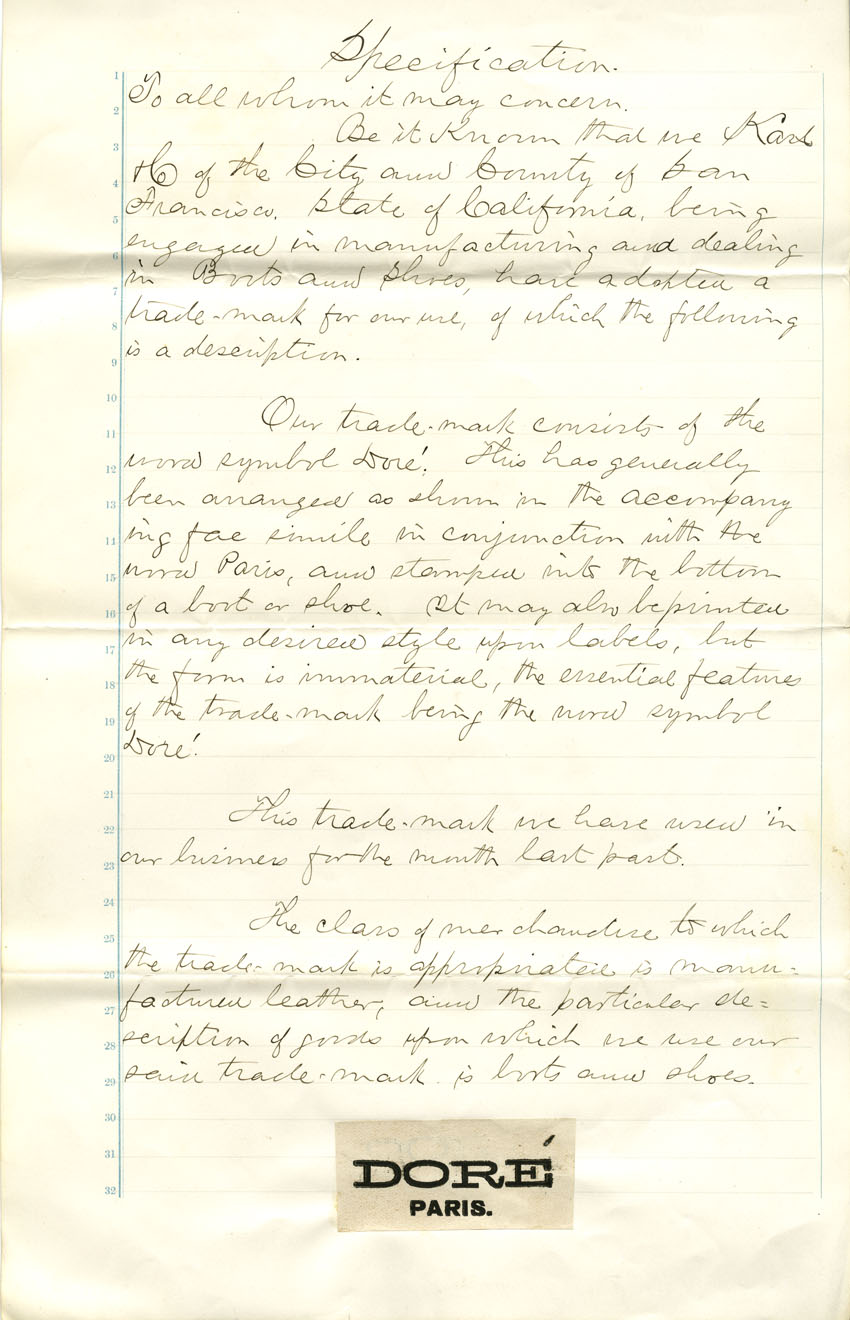 Specification.
1
To all whom it may concern.
2
Be it Known that we Karl
3
& Co of the City and County of San
4
Francisco, State of California, being
5
engaged in manufacturing and dealing
6
in Boots and Shoes, have adopted a
7
trade-mark for our use, of which the following
8
is a description.
9
10
Our trade-mark consists of the
11
word symbol Doré. This has generally
12
been arranged as shown in the accompany
13
ing fac simile in conjunction with the
14
word Paris, and stamped into the bottom
15
of a boot or shoe. It may also be printed
16
in any desired style upon labels, but
17
the form is immaterial, the essential features
18
of the trade-mark being the word symbol
19
Doré.
20
21
This trade-mark we have used in
22
our business for the month last past.
23
24
The class of merchandise to which
25
the trade-mark is appropriated is manu-
26
factured leather, and the particular de=
27
scription of goods upon which we use our
28
said trade-mark is boots and shoes.
29
30
31
32
DORÉ
PARIS.